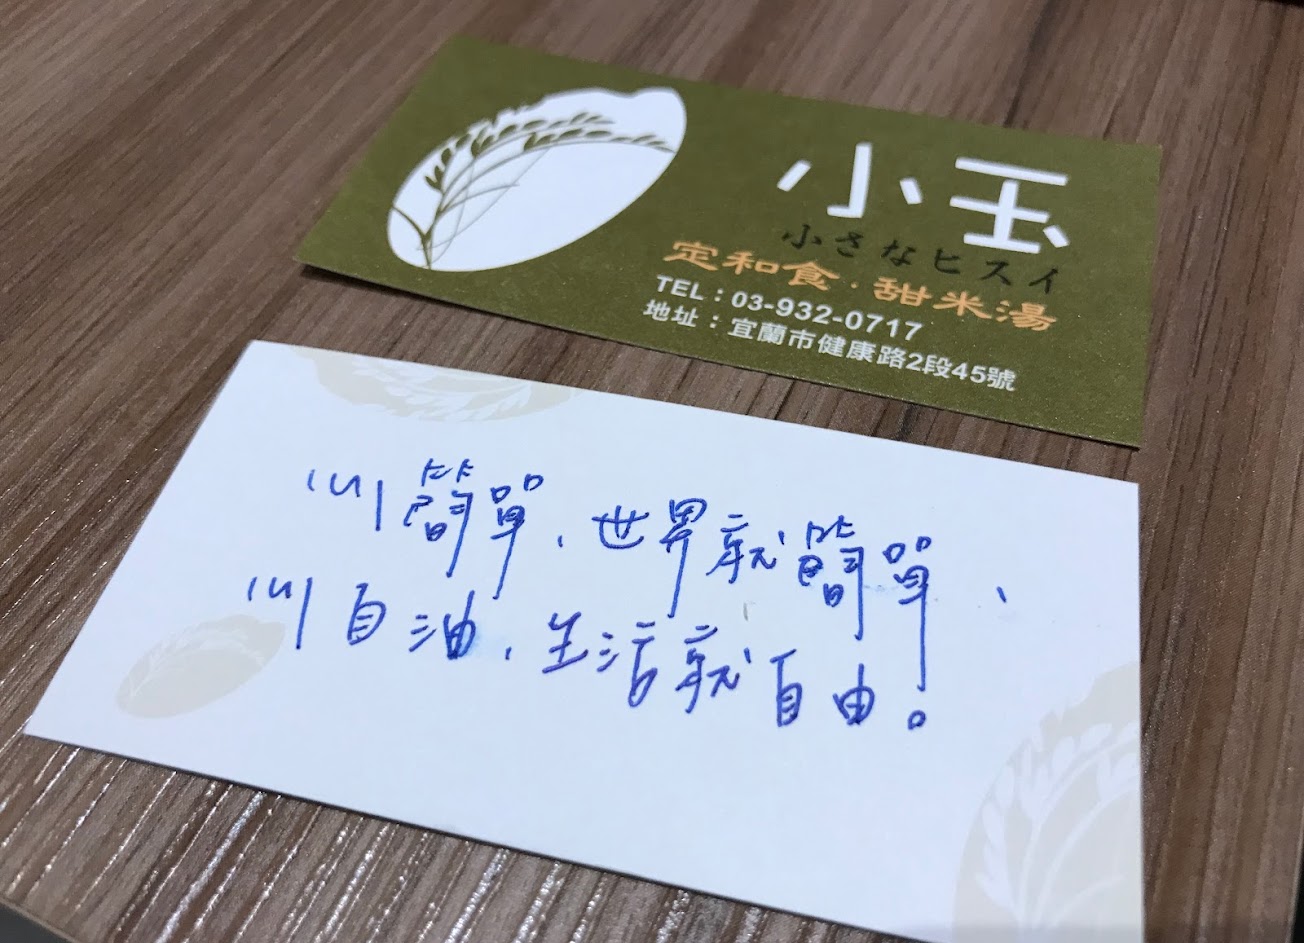 小玉
小さなヒスイ
定和食·甜米湯
TEL：03-932-0717
地址：宜蘭市健康路2段45號
心簡單、世界就簡單、
心自油、生活就自由。